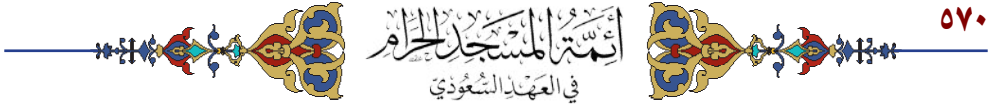 ٥٧٠
أَئِمَّةُ المَسْجِدِ الحَرَامِ
في العَهْدِ السُّعُودِيّ